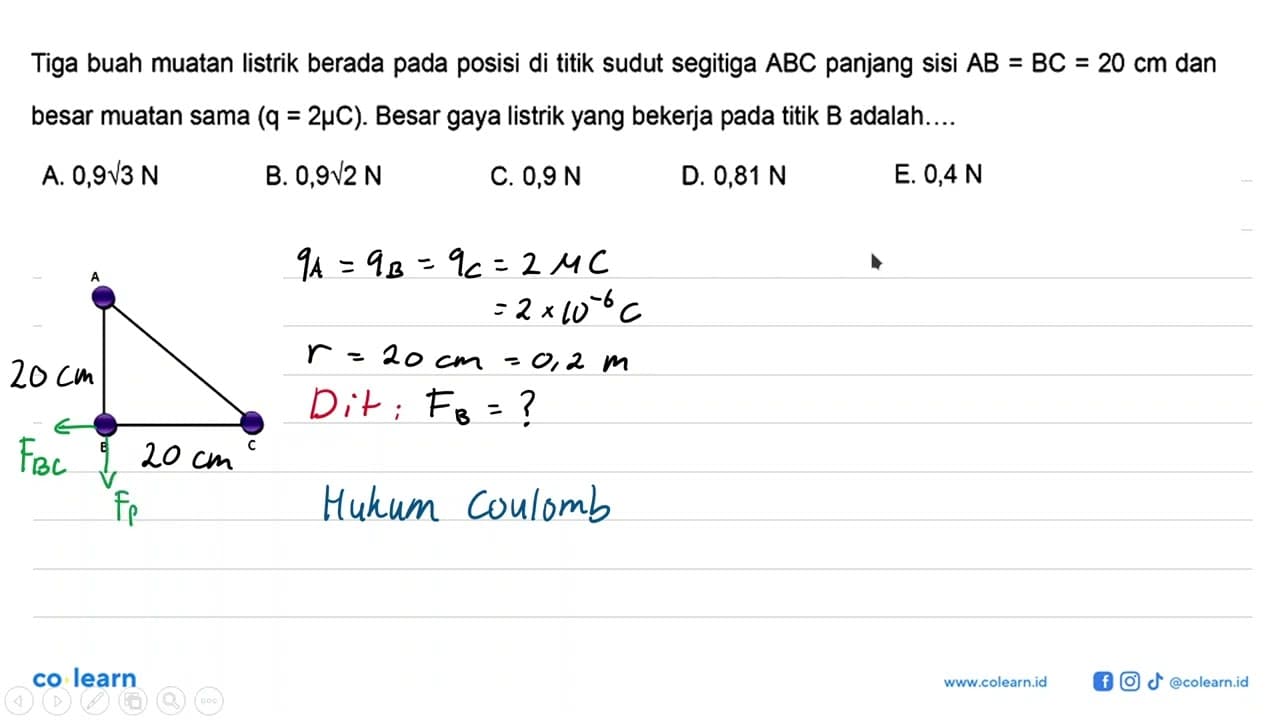 Tiga buah muatan listrik berada pada posisi di titik sudut segitiga ABC panjang sisi AB = BC = 20 cm dan
besar muatan sama (q = 2μC). Besar gaya listrik yang bekerja pada titik B adalah....
A. 0,9√3 N B. 0,9√2 N C. 0,9 N D. 0,81 N E. 0,4 N
qA = qB = qC = 2 μC
= 2 × 10⁻⁶ C
r = 20 cm = 0,2 m
Dit : FB = ?
Hukum Coulomb
A
20 cm
B
C
FBC
20 cm
Fp
co learn
www.colearn.id
@colearn.id